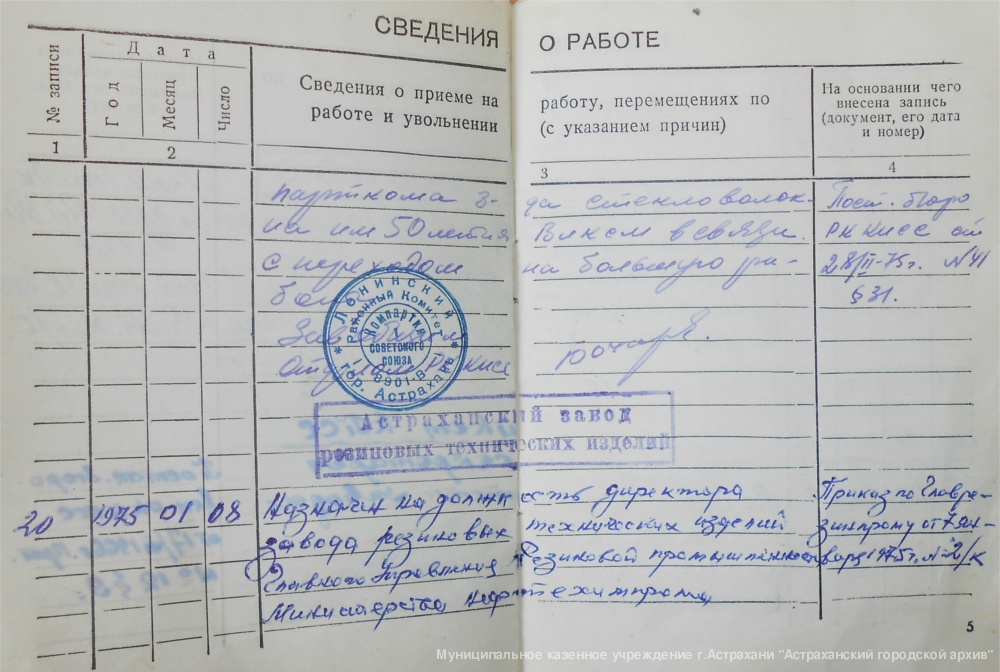 СВЕДЕНИЯ О РАБОТЕ
№ записи
Дата
Год
Месяц
Число
Сведения о приеме на работу, перемещениях по
работе и увольнении (с указанием причин)
На основании чего
внесена запись
(документ, его дата
и номер)
1 2 3 4
парткома з-да стекловолок-
на им 50 летия ВЛКСМ в связи
с переходом на большую ра-
Пост. бюро
РК КПСС от
28/II-75г. №41
§31.
Ленинский
Районный Комитет
Компартия
Советского
Союза
гор. Астрахань
Астраханский завод
резиновых технических изделий
20 1975 01 08 Назначен на должность директора
завода резиновых технических изделий
Главного Управления Резиновой промышленности
Министерства Нефтехимпрома
Приказ по Главре-
зинпрому от 7 ян-
варя 1975г. №2/к
5
Муниципальное казенное учреждение г.Астрахани "Астраханский городской архив"